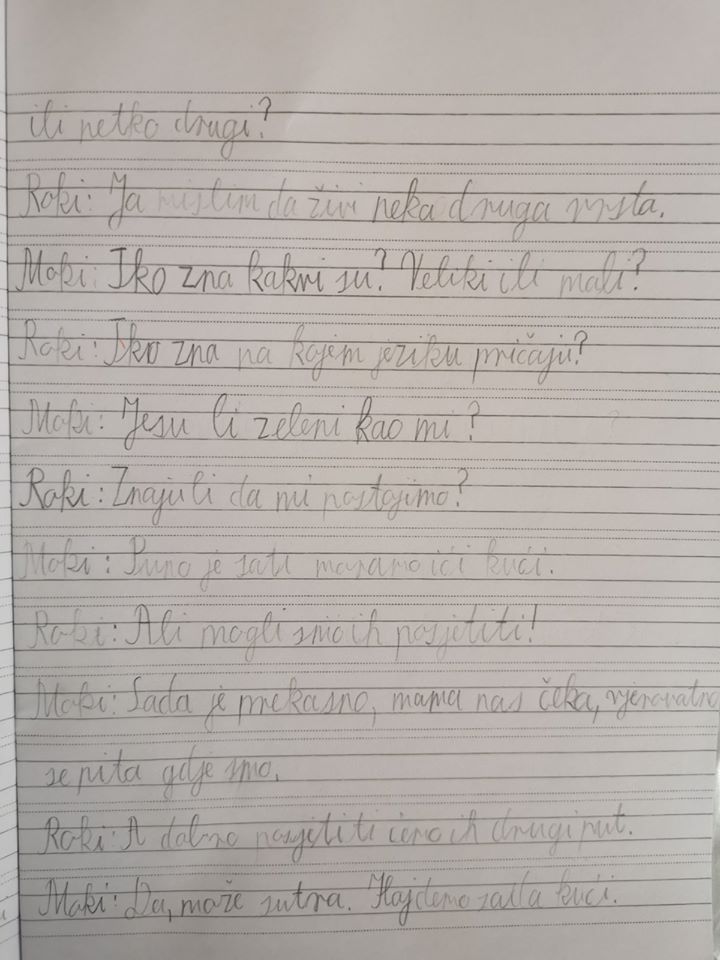 ili netko drugi?
Roki: Ja mislim da živi neka druga vrsta.
Moki: Tko zna kakvi su? Veliki ili mali?
Roki: Tko zna na kojem jeziku pričaju?
Moki: Jesu li zeleni kao mi?
Roki: Znaju li da mi postojimo?
Moki: Puno je sati moramo ići kući.
Roki: Ali mogli smo ih posjetiti!
Moki: Sada je prekasno, mama nas čeka, vjerovatno
se pita gdje smo.
Roki: A dobro posjetiti ćemo ih drugi put.
Moki: Da, može sutra. Hajdemo sada kući.